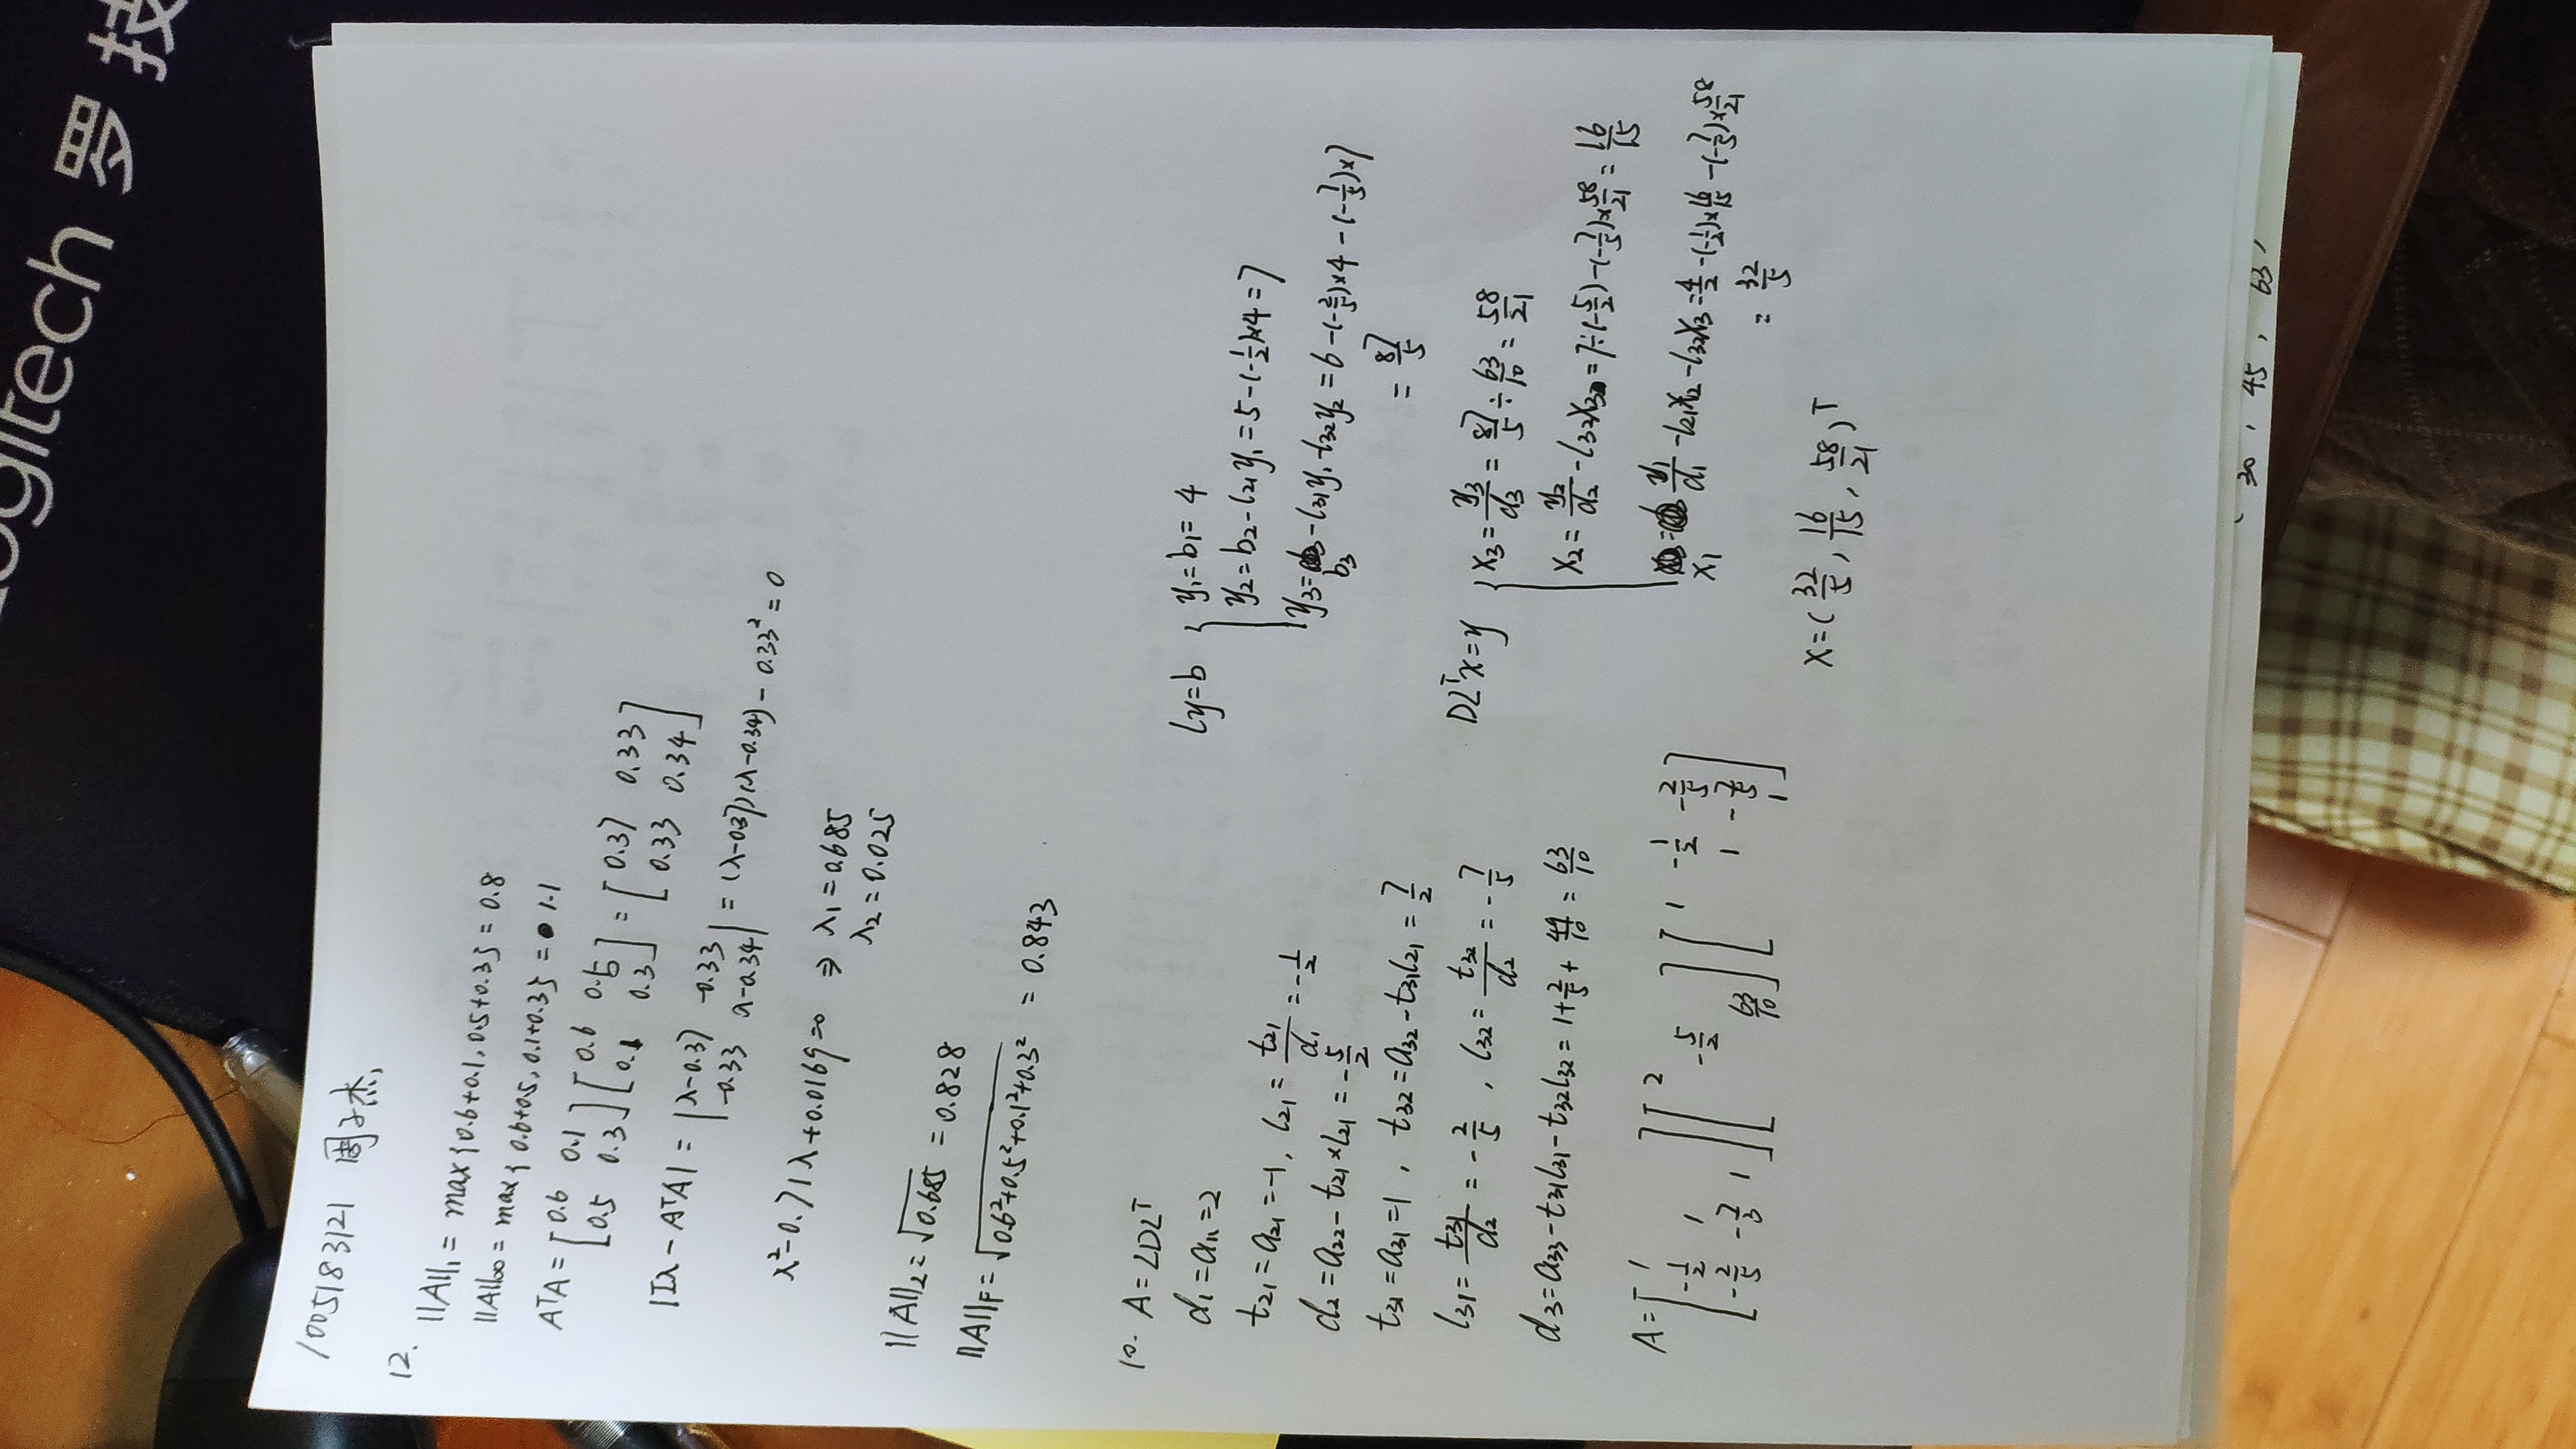 Logitech 罗技
1005183121 周子杰
12.
||A||₁ = max{0.6+0.1, 0.5+0.3} = 0.8
||A||∞ = max{0.6+0.5, 0.1+0.3} = 1.1
AᵀA = [0.6 0.1; 0.5 0.3] [0.6 0.5; 0.1 0.3] = [0.37 0.33; 0.33 0.34]
|Iλ - AᵀA| = |λ-0.37 -0.33; -0.33 λ-0.34| = (λ-0.37)(λ-0.34) - 0.33² = 0
λ² - 0.71λ + 0.0169 = 0 ⇒ λ₁ = 0.685
λ₂ = 0.025
||A||₂ = √0.685 = 0.828
||A||F = √(0.6²+0.5²+0.1²+0.3²) = 0.843
10. A = LDLᵀ
d₁ = a₁₁ = 2
t₂₁ = a₂₁ = -1, l₂₁ = t₂₁/d₁ = -1/2
d₂ = a₂₂ - t₂₁×l₂₁ = -5/2
t₃₁ = a₃₁ = 1, t₃₂ = a₃₂ - t₃₁l₂₁ = 7/2
l₃₁ = t₃₁/d₂ = -2/5, l₃₂ = t₃₂/d₂ = -7/5
d₃ = a₃₃ - t₃₁l₃₁ - t₃₂l₃₂ = 1 + 2/5 + 49/10 = 63/10
A = [1; -1/2 1; -2/5 -7/3 1] [2; -5/2; 63/10] [1 -1/2 -2/5; 1 -7/5; 1]
Ly = b { y₁ = b₁ = 4
y₂ = b₂ - l₂₁y₁ = 5 - (-1/2)×4 = 7
y₃ = b₃ - l₃₁y₁ - l₃₂y₂ = 6 - (-2/5)×4 - (-7/5)×7
= 87/5
DLᵀx = y { x₃ = y₃/d₃ = 87/5 ÷ 63/10 = 58/21
x₂ = y₂/d₂ - l₃₂x₃ = 7÷(-5/2) - (-7/5)×58/21 = 16/15
x₁ = y₁/d₁ - l₂₁x₂ - l₃₂x₃ = 4/2 - (-1/2)×16/15 - (-7/5)×58/21
= 32/5
x = (32/5, 16/15, 58/21)ᵀ
30, 45, 63,